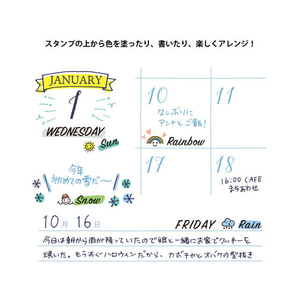 スタンプの上から色を塗ったり、書いたり、楽しくアレンジ！
JANUARY
1
WEDNESDAY
Sun
今年
初めての雪だ〜
Snow
10
久しぶりに
アンナとご飯！
Rainbow
11
17
18
16:00 CAFE
まちあわせ
10月 16日
FRIDAY
Rain
今日は朝から雨が降っていたので娘と一緒にお家でクッキーを
焼いた。もうすぐハロウィンだから、カボチャとオバケの型抜き